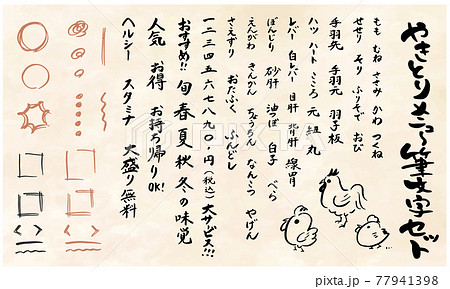 やきとりメニュー筆文字セット
もも むね ささみ かわ つくね
せせり そり ふりそで おび
手羽先 手羽元 羽子板
ハツ ハート こころ 元 紐 丸
レバー 白レバー 目肝 背肝 縁胃
ぼんじり 砂肝 油つぼ 白子 べら
えんがわ きんかん ちょうちん なんこつ やげん
さえずり おたふく ふんどし
一二三四五六七八九十円(税込) 大サービス!!!
おすすめ!! 旬 春夏秋冬の味覚
人気 お得 お持ち帰りOK!
ヘルシー スタミナ 大盛り無料
PIXTA
pixta.jp - 77941398